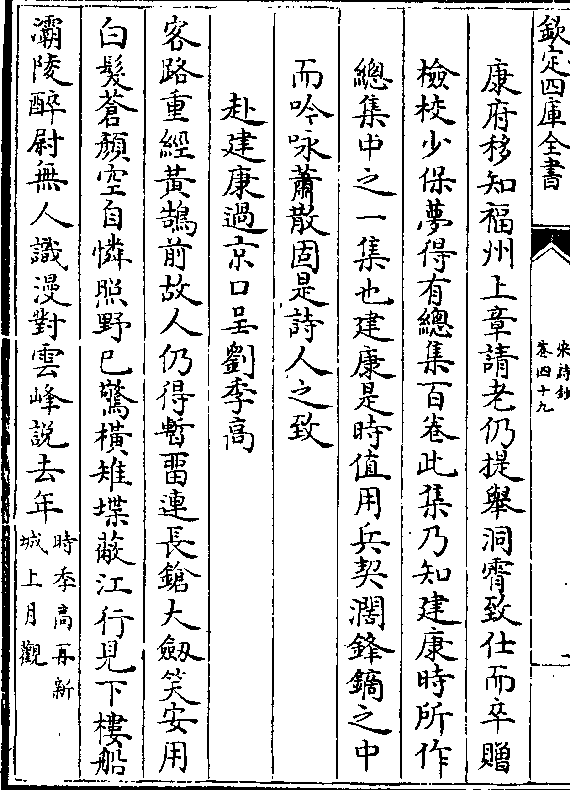 欽定四庫全書
宋詩鈔
卷四十九
康府移知福州上章請老仍提舉洞霄致仕而卒贈
檢校少保夢得有總集百卷此集乃知建康時所作
總集中之一集也建康是時值用兵契濶鋒鏑之中
而吟咏蕭散固是詩人之致
赴建康過京口呈劉季高
客路重經黃鵠前故人仍得暫留連長鎗大劒笑安用
白髮蒼顔空自憐照野已驚橫雉堞蔽江行見下樓船
灞陵醉尉無人識漫對雲峰說去年
時季高再新
城上月觀